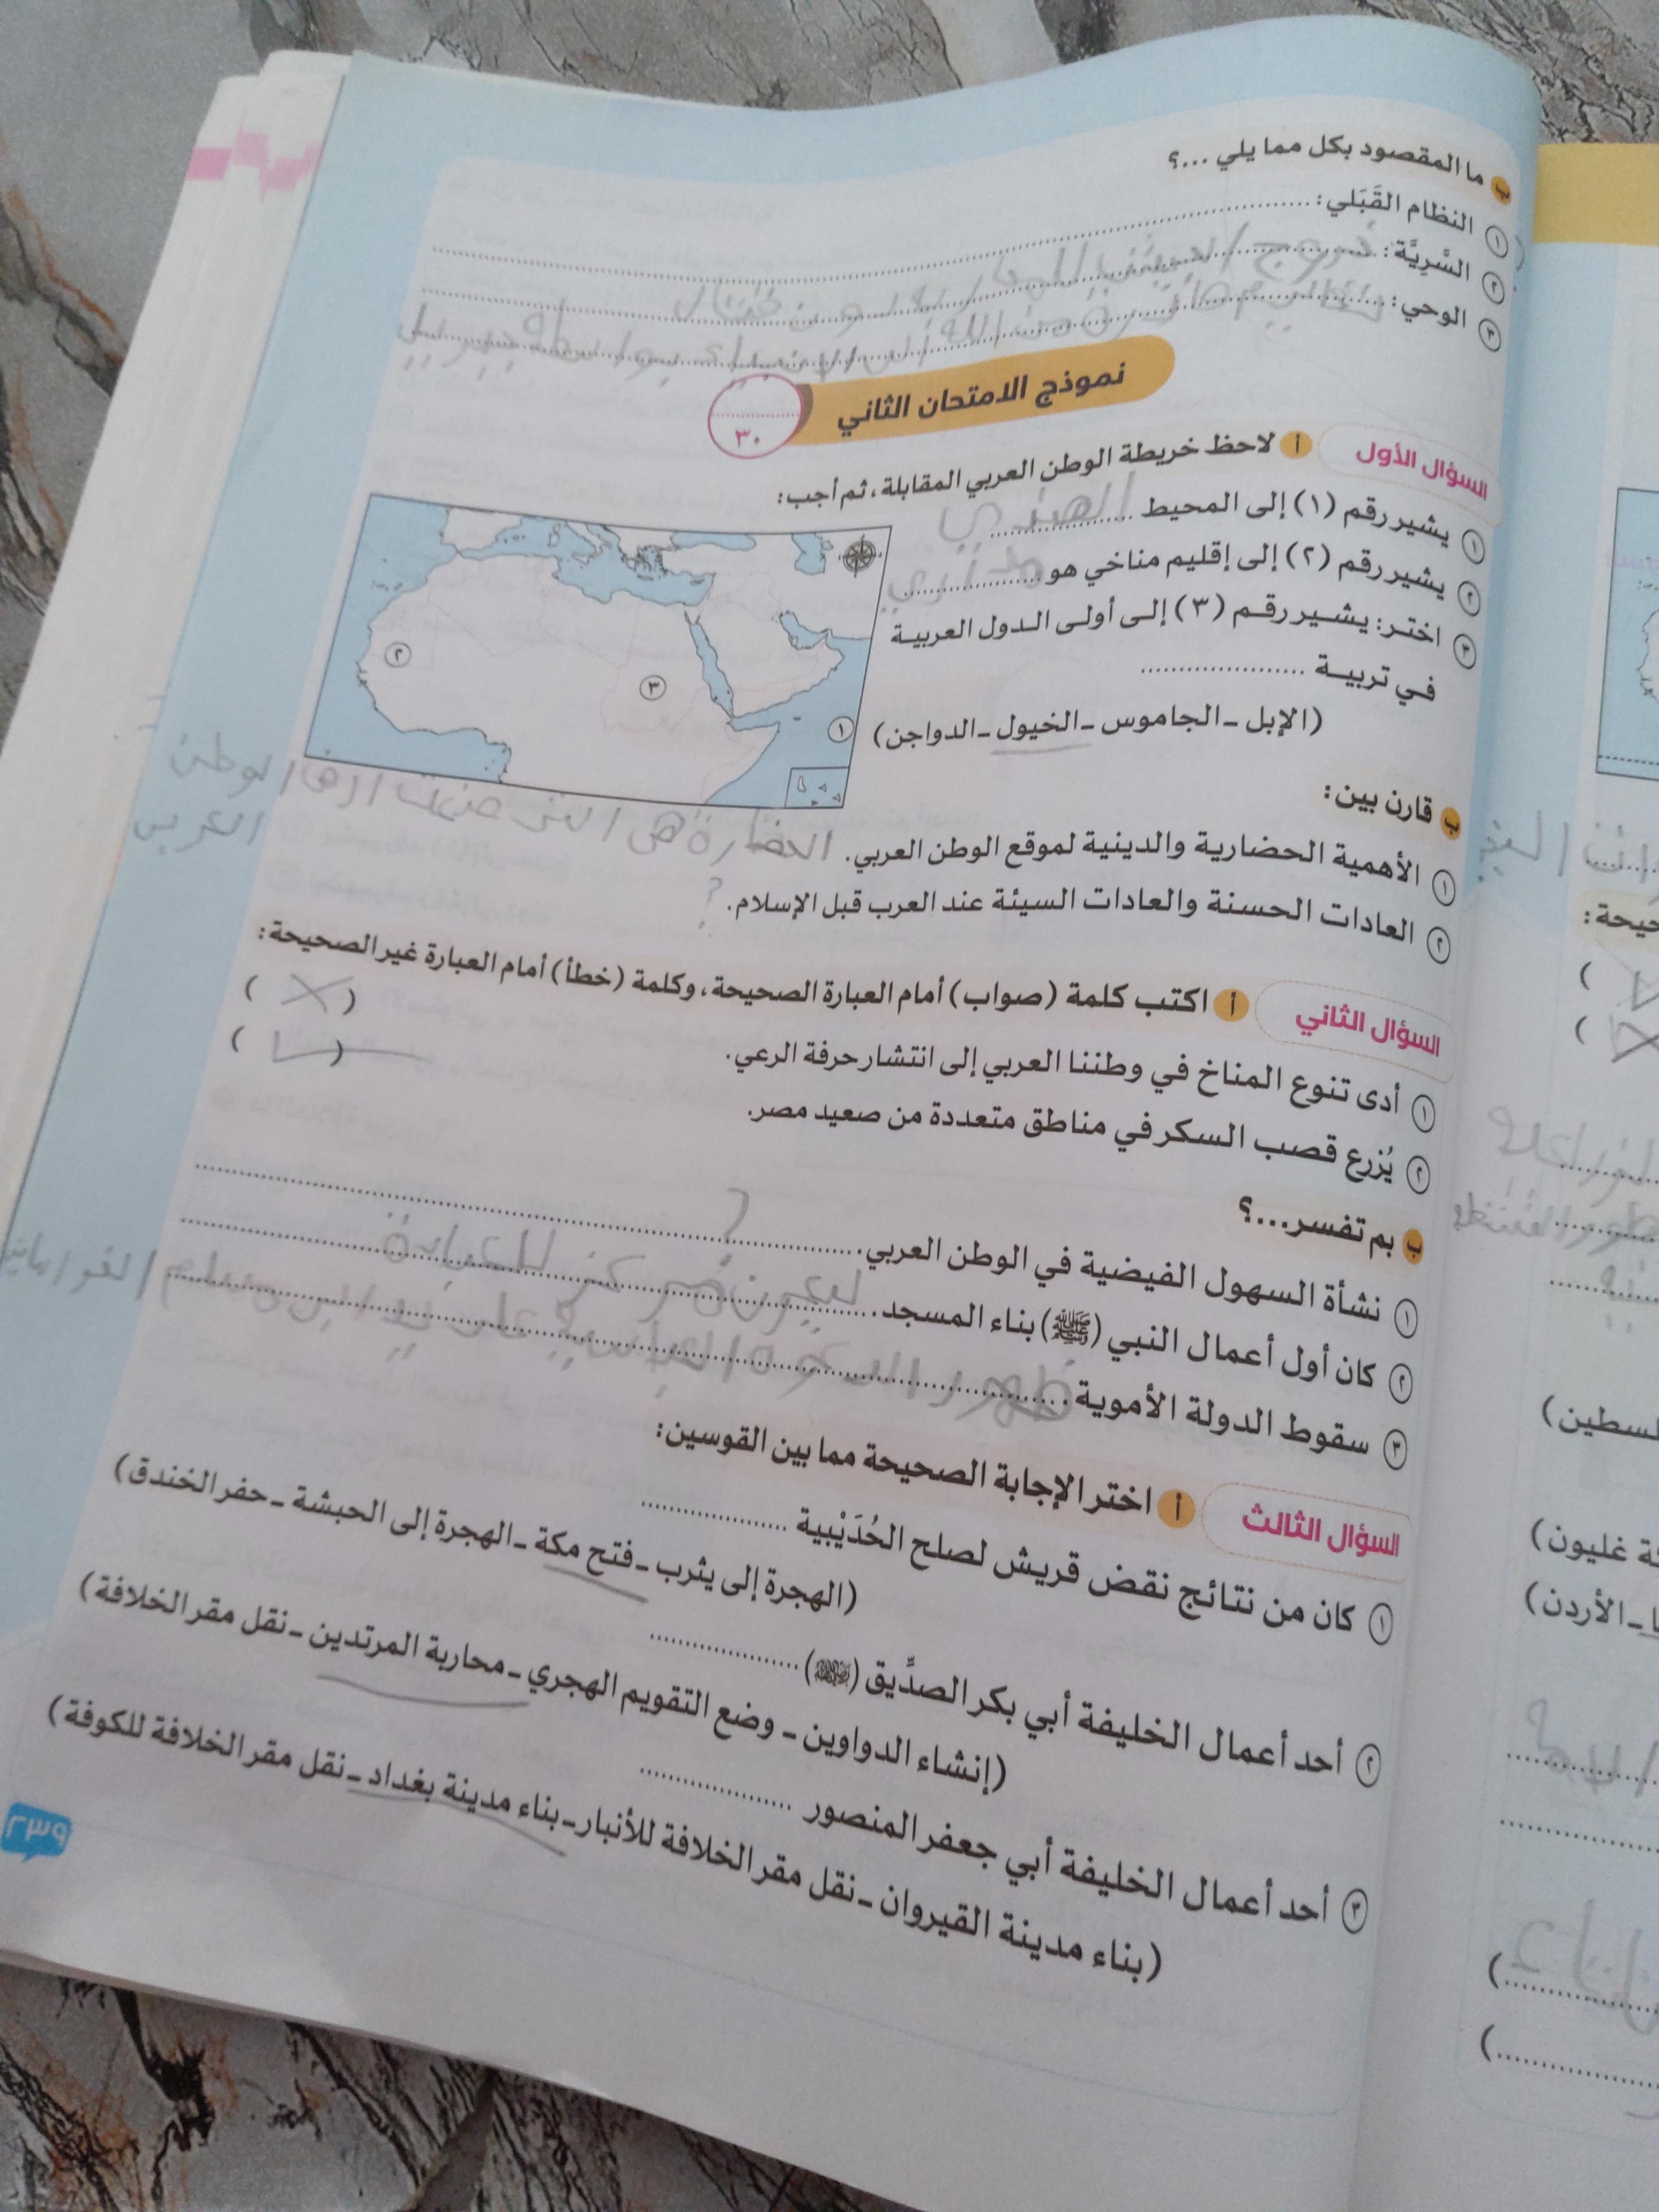 ب ما المقصود بكل مما يلي ...؟
١ النظام القَبَلي: ..........
٢ السَّرِيَّة: .......... خروج الجيش
٣ الوحي: .......... من الله الى الانبياء بواسطة جبريل
نموذج الامتحان الثاني
٣٠
السؤال الأول أ لاحظ خريطة الوطن العربي المقابلة، ثم أجب:
١ يشير رقم (١) إلى المحيط .......... الهندي
٢ يشير رقم (٢) إلى إقليم مناخي هو ..........
٣ اختر: يشير رقم (٣) إلى أولى الدول العربية
في تربية ..........
(الإبل - الجاموس - الخيول - الدواجن)
١
٢
٣
ب قارن بين:
١ الأهمية الحضارية والدينية لموقع الوطن العربي. الحضارة هي التي الوطن
العربي
٢ العادات الحسنة والعادات السيئة عند العرب قبل الإسلام. ؟
السؤال الثاني أ اكتب كلمة (صواب) أمام العبارة الصحيحة، وكلمة (خطأ) أمام العبارة غير الصحيحة:
١ أدى تنوع المناخ في وطننا العربي إلى انتشار حرفة الرعي. (X)
٢ يُزرع قصب السكر في مناطق متعددة من صعيد مصر. (✓)
ب بم تفسر...؟
١ نشأة السهول الفيضية في الوطن العربي. .......... ؟
٢ كان أول أعمال النبي (ﷺ) بناء المسجد. .......... ليكون مركز للعبادة
٣ سقوط الدولة الأموية. .......... ظهور الدعوة العباسية على يد ابو مسلم الخراساني
السؤال الثالث أ اختر الإجابة الصحيحة مما بين القوسين:
١ كان من نتائج نقض قريش لصلح الحُدَيْبية ..........
(الهجرة إلى يثرب - فتح مكة - الهجرة إلى الحبشة - حفر الخندق)
٢ أحد أعمال الخليفة أبي بكر الصدِّيق (رضي الله عنه) ..........
(إنشاء الدواوين - وضع التقويم الهجري - محاربة المرتدين - نقل مقر الخلافة)
٣ أحد أعمال الخليفة أبي جعفر المنصور ..........
(بناء مدينة القيروان - نقل مقر الخلافة للأنبار - بناء مدينة بغداد - نقل مقر الخلافة للكوفة)
٢٣٩
حيحة:
لسطين)
ة غليون)
ا - الأردن)